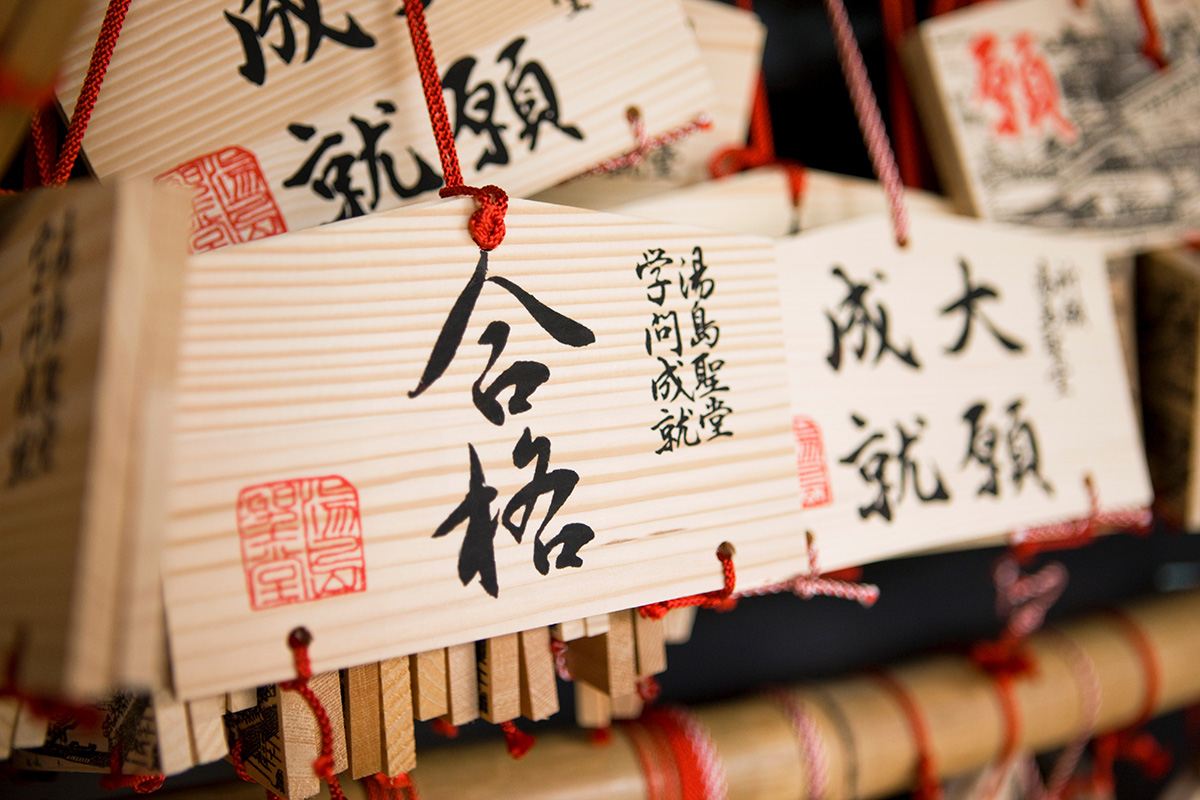 願
成就
願
湯島聖堂
学問成就
合格
湯島
聖堂
大願
成就